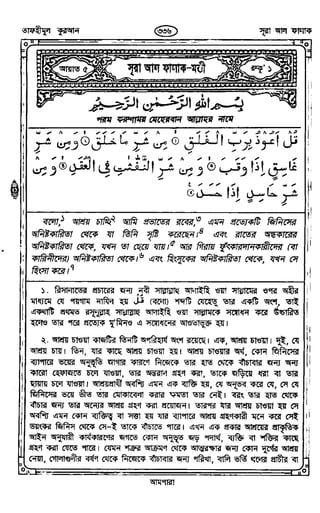 তাফহীমুল কুরআন
৩৩৬
সূরা আল ফালাক
আয়াত ৫
সূরা আল ফালাক-মক্কী
রুকূ' ১
بِسْمِ اللهِ الرَّحْمٰنِ الرَّحِيْمِ
পরম করুণাময় মেহেরবান আল্লাহর নামে
قُلْ اَعُوْذُ بِرَبِّ الْفَلَقِ ۙ مِنْ شَرِّ مَا خَلَقَ ۙ وَمِنْ شَرِّ
غَاسِقٍ اِذَا وَقَبَ ۙ وَمِنْ شَرِّ النَّفّٰثٰتِ فِي الْعُقَدِ ۙ وَمِنْ
شَرِّ حَاسِدٍ اِذَا حَسَدَ
বলো,১ আশ্রয় চাচ্ছি২ আমি প্রভাতের রবের,৩ এমন প্রত্যেকটি জিনিসের
অনিষ্টকারিতা থেকে যা তিনি সৃষ্টি করেছেন।৪ এবং রাতের অন্ধকারের
অনিষ্টকারিতা থেকে, যখন তা ছেয়ে যায়।৫ আর গিরায় ফুঁৎকারদানকারীদের (বা
কারিনীদের) অনিষ্টকারিতা থেকে।৬ এবং হিংসুকের অনিষ্টকারিতা থেকে, যখন সে
হিংসা করে।৭
১. রিসালাতের প্রচারের জন্য নবী সাল্লাল্লাহু আলাইহি ওয়া সাল্লামের ওপর অহীর
মাধ্যমে যে পয়গাম নাযিল হয় قُلْ (বলো) শব্দটি যেহেতু তার একটি অংশ, তাই
একথাটি প্রথমত রসূলুল্লাহ সাল্লাল্লাহু আলাইহি ওয়া সাল্লামকে সম্বোধন করে উচ্চারিত
হলেও তার পরে প্রত্যেক মু'মিনও এ সম্বোধনের আওতাভুক্ত হয়।
২. আশ্রয় চাওয়া কাজটির তিনটি অপরিহার্য অংশ রয়েছে। এক, আশ্রয় চাওয়া। দুই, যে
আশ্রয় চায়। তিন, যার কাছে আশ্রয় চাওয়া হয়। আশ্রয় চাওয়ার অর্থ, কোন জিনিসের
ব্যাপারে ভয়ের অনুভূতি জাগার কারণে নিজেকে তার হাত থেকে বাঁচাবার জন্য অন্য
কারো হেফাজতে চলে যাওয়া, তার অন্তরাল গ্রহণ করা, তাকে জড়িয়ে ধরা বা তার
ছায়ায় চলে যাওয়া। আশ্রয়প্রার্থী অবশ্যি এমন এক ব্যক্তি হয়, যে অনুভব করে যে, সে যে
জিনিসের ভয়ে ভীত তার মোকাবেলা করার ক্ষমতা তার নেই। বরং তার হাত থেকে
বাঁচার জন্য তার অন্যের আশ্রয় গ্রহণ করা প্রয়োজন। তারপর যার আশ্রয় চাওয়া হয় সে
অবশ্যি এমন কোন ব্যক্তিত্ব বা সত্তা হয় যার ব্যাপারে আশ্রয় গ্রহণকারী মনে করে সেই
ভয়ংকর জিনিস থেকে সে-ই তাকে বাঁচাতে পারে। এখন এক প্রকার আশ্রয়ের প্রাকৃতিক
আইন অনুযায়ী কার্যকারণের জগতে কোন অনুভূত জড় পদার্থ, ব্যক্তি বা শক্তির কাছে
গ্রহণ করা যেতে পারে। যেমন শত্রুর আক্রমণ থেকে আত্মরক্ষার জন্য কোন দুর্গের আশ্রয়
নেয়া, গোলাগুলীর বর্ষণ থেকে নিজেকে বাঁচাবার জন্য পরিখা, বালি ভর্তি থলের প্রাচীর বা
আমপারা